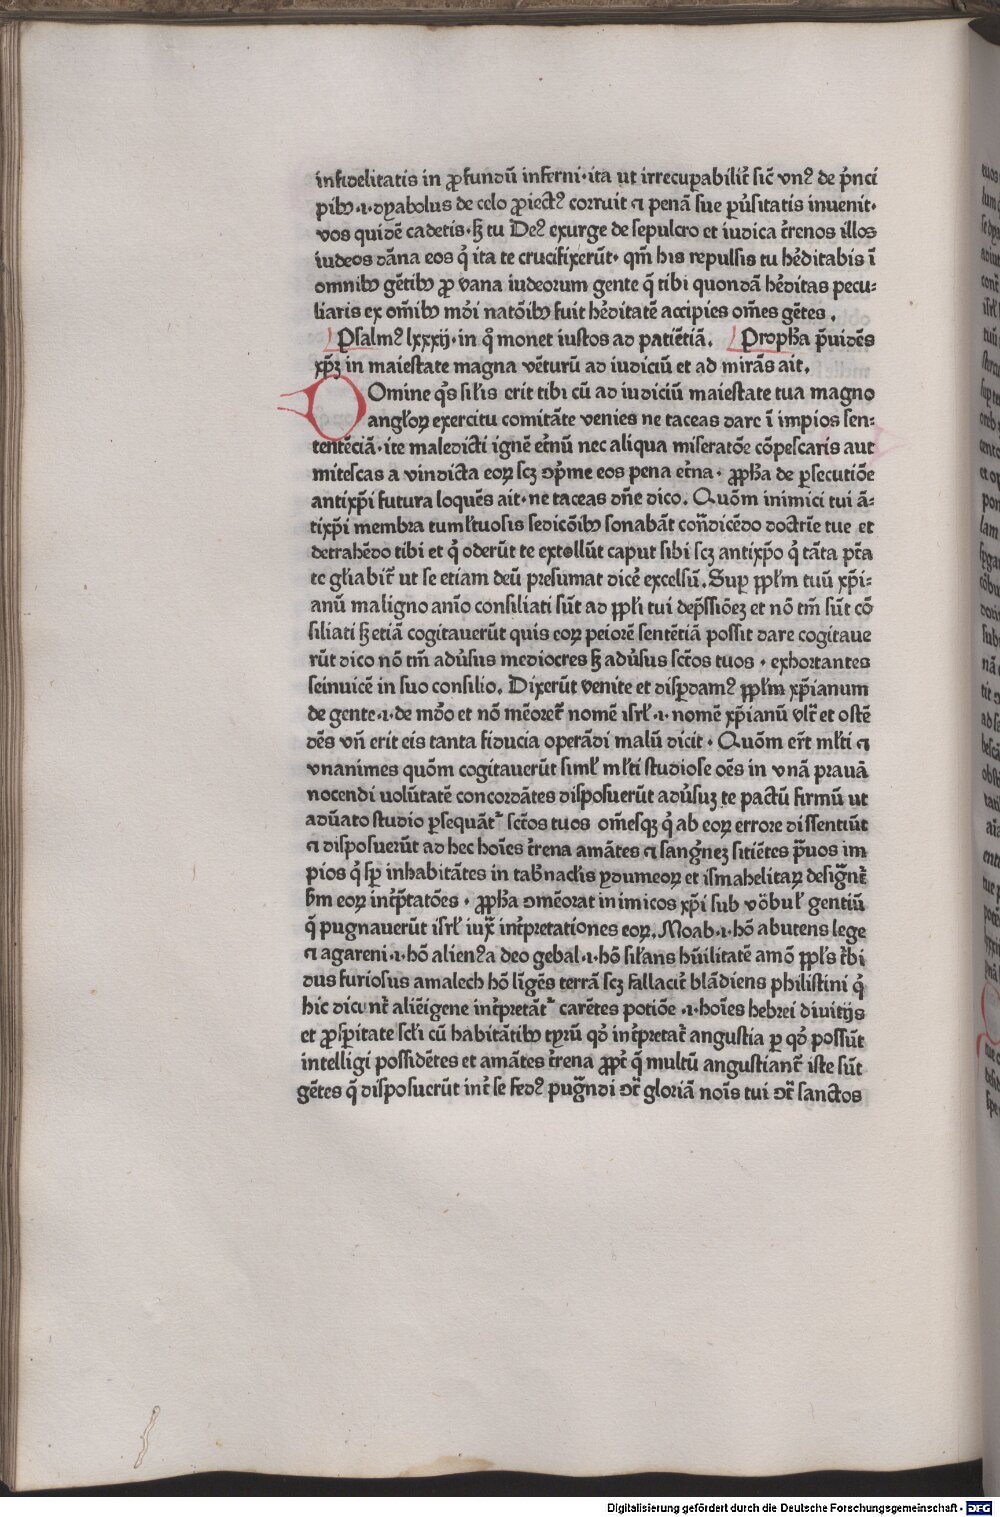 infidelitatis in ꝓfundū inferni·ita ut irrecuꝑabilit̄ sic̄ vnꝰ de p̄nci
pibꝫ·i·dyabolus de celo ꝓiectꝰ corruit ⁊ penā sue ꝑu̓sitatis inuenit·
vos quidē cadetis·sꝫ tu Deꝰ exurge de sepulcro et iudica t̄renos illos
iudeos dāna eos q̓ ita te crucifixerūt· qm̄ his repulsis tu he̓ditabis ī
omnibꝫ gētibꝫ ꝓ vana iudeorum gente q̄ tibi quondā he̓ditas pecu-
liaris ex om̄ibꝫ mōi natōibꝫ fuit he̓ditatē accipies om̄es gētes .
Psalmꝰ lxxxij·in q̊ monet iustos ad patiētiā. Propħa p̄uidēs
xp̄ꝫ in maiestate magna vēturū ad iudiciū et ad mirās ait.
Omine q̓s sil̓is erit tibi cū ad iudiciū maiestate tua magno
angl̓oꝝ exercitu comitāte venies ne taceas dare ī impios sen-
tentēciā·ite maledicti ignē et̓nū nec aliqua miseratōe cōpescaris aut
mitescas a vindicta eoꝝ scꝫ ꝯp̓me eos pena et̓na· ꝓpħa de ꝑsecutiōe
antixp̄i futura loquēs ait·ne taceas dn̄e dico. Quōm inimici tui ā-
tixp̄i membra tuml̓tuosis sedicōibꝫ sonabāt con̄dicēdo doctrīe tue et
detrahēdo tibi et q̓ oderūt te extollūt caput sibi scꝫ antixp̄o q̓ tāta p̄ta
te gl̓iabit̄ ut se etiam deū presumat dice̓ excelsū. Suꝑ ppl̓m tuū xp̄i-
anū maligno anīo consiliati sūt ad ppl̓i tui dep̄ssiōeꝫ et nō tm̄ sūt cō
siliati sꝫ etiā cogitauerūt quis eoꝝ peiorē sentētiā possit dare cogitaue
rūt dico nō tm̄ adu̓sus mediocres sꝫ adu̓sus sc̄tos tuos · exhortantes
seinuicē in suo consilio. Dixerūt venite et disꝑdamꝰ ppl̓m xp̄ianum
de gente·i·de mōo et nō mēoret̄ nomē isrl̓·i· nomē xp̄ianū vlt̄ et ostē
dēs vn̄ erit eis tanta fiducia operādi malū dicit · Quōm er̄t ml̓ti ⁊
vnanimes quōm cogitauerūt siml̓ ml̓ti studiose oēs in vnā prauā
nocendi uolūtatē concordātes disposuerūt adu̓suꝫ te pactū firmū ut
adūato studio ꝑsequāt᷑ sc̄tos tuos om̄esqꝫ q̓ ab eoꝝ errore dissentiūt
⁊ disposuerūt ad hec hoīes t̄rena amātes ⁊ sang̓neꝫ sitiētes p̄uos im
pios q̓ sꝑ inhabitātes in tab̓naclis ydumeoꝝ et ismahelitaꝝ desig̓nt̄
ẜm eoꝝ int̓p̄tatōes · ꝓpħa ꝯmēorat inimicos xp̄i sub vōbul̓ gentiū
q̄ pugnauerūt isrl̓ iux̄ int̓pretationes eoꝝ. Moab·i·hō abutens lege
⁊ agareni·i·hō alienꝰa deo gebal·i·hō sil̓ans hūilitatē amō ppl̓s t̄bi
dus furiosus amalech hō līgēs terrā scꝫ fallacit̓ blādiens philistini q̓
hic dicunt̄ aliēigene int̓pretāt᷑ carētes potiōe ·i·hoīes hebrei diuitijs
et ꝓsꝑitate scl̓i cū habitātibꝫ tyrū qd̓ int̓pretat̄ angustia ꝑ qd̓ possūt
intelligi possidētes et amātes t̄rena ꝓpt̓ q̄ multū angustiant̄ iste sūt
gētes q̄ disposuerūt int̓ se fedꝰ pug̓ndi ꝯt̄ gloriā noīs tui ꝯt̄ sanctos
Digitalisierung gefördert durch die Deutsche Forschungsgemeinschaft · DFG